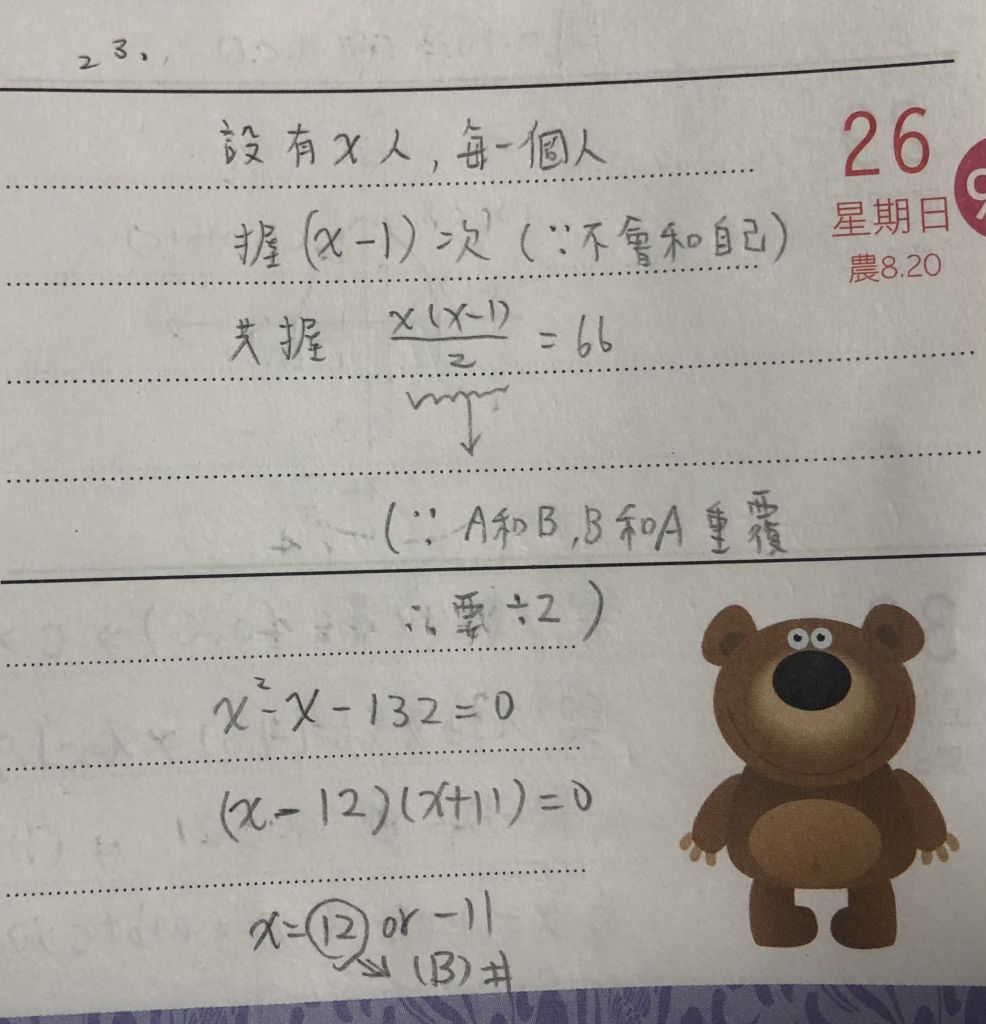 23.
設有x人,每一個人
握(x-1)次(∵不會和自己)
共握 x(x-1)/2 = 66
(∵A和B,B和A重覆
∴要÷2)
x²-x-132=0
(x-12)(x+11)=0
x=12 or -11
(B)#
26
星期日
農8.20
9